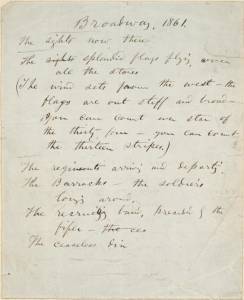 Broadway, 1861.
The sights now there
The splendid flags flying over
all the stores
(The wind sets from the west – the
flags are out stiff and broad –
you can count every star of
the thirty four – you can count
the thirteen stripes.)
The regiments arriving and departing,
The Barracks – the soldiers
lounging around,
The recruiting band, preceded by the
fifer – the
The ceaseless din